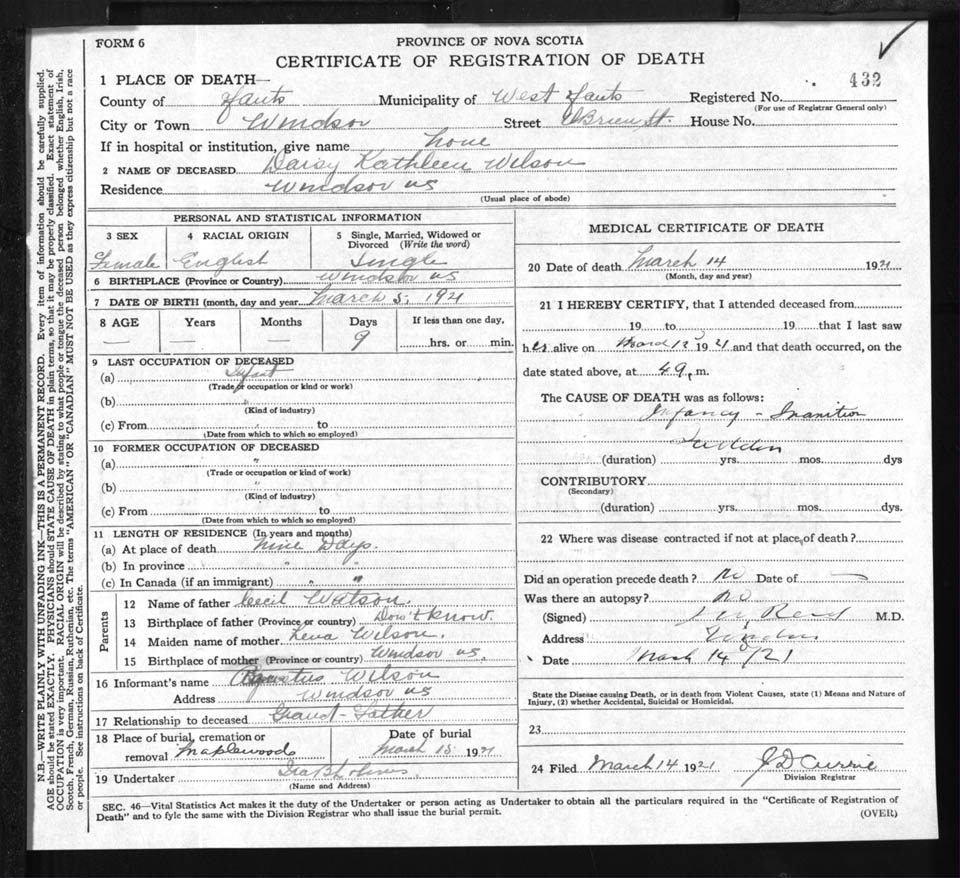 FORM 6
PROVINCE OF NOVA SCOTIA
CERTIFICATE OF REGISTRATION OF DEATH
432
1 PLACE OF DEATH—
County of Hants Municipality of West Hants Registered No.
(For use of Registrar General only)
City or Town Windsor Street O'Brien St. House No.
If in hospital or institution, give name home
2 NAME OF DECEASED Daisy Kathleen Wilson
Residence Windsor NS
(Usual place of abode)
PERSONAL AND STATISTICAL INFORMATION
3 SEX 4 RACIAL ORIGIN 5 Single, Married, Widowed or Divorced (Write the word)
Female English Single
6 BIRTHPLACE (Province or Country) Windsor NS
7 DATE OF BIRTH (month, day and year March 5, 1921
8 AGE Years Months Days If less than one day,
— — 9 hrs. or min.
9 LAST OCCUPATION OF DECEASED
(a) Infant
(Trade or occupation or kind or work)
(b) "
(Kind of industry)
(c) From to
(Date from which to which so employed)
10 FORMER OCCUPATION OF DECEASED
(a) "
(Trade or occupation or kind of work)
(b) "
(Kind of industry)
(c) From to
(Date from which to which so employed)
11 LENGTH OF RESIDENCE (In years and months)
(a) At place of death Nine Days.
(b) In province " "
(c) In Canada (if an immigrant) " "
Parents
12 Name of father Cecil Watson.
13 Birthplace of father (Province or country) Don't know.
14 Maiden name of mother Lena Wilson.
15 Birthplace of mother (Province or country) Windsor NS.
16 Informant's name Wilson
Address Windsor NS
17 Relationship to deceased Grand-Father
18 Place of burial, cremation or removal Maplewoods
Date of burial March 15 1921
19 Undertaker
(Name and Address)
MEDICAL CERTIFICATE OF DEATH
20 Date of death March 14 1921
(Month, day and year)
21 I HEREBY CERTIFY, that I attended deceased from
19 to 19 that I last saw
her alive on March 12 1921 and that death occurred, on the
date stated above, at 4 a. m.
The CAUSE OF DEATH was as follows:
Infancy - Inanition
Sudden
(duration) yrs. mos. dys
CONTRIBUTORY
(Secondary)
(duration) yrs. mos. dys.
22 Where was disease contracted if not at place of death?
Did an operation precede death? No Date of —
Was there an autopsy? no
(Signed) Reid M.D.
Address Windsor
Date March 14/21
State the Disease causing Death, or in death from Violent Causes, state (1) Means and Nature of
Injury, (2) whether Accidental, Suicidal or Homicidal.
23
24 Filed March 14 1921 J D Currie
Division Registrar
SEC. 46—Vital Statistics Act makes it the duty of the Undertaker or person acting as Undertaker to obtain all the particulars required in the "Certificate of Registration of
Death" and to fyle the same with the Division Registrar who shall issue the burial permit.
(OVER)
N.B.—WRITE PLAINLY WITH UNFADING INK—THIS IS A PERMANENT RECORD. Every item of information should be carefully supplied.
AGE should be stated EXACTLY. PHYSICIANS should STATE CAUSE OF DEATH in plain terms, so that it may be properly classified. Exact statement of
OCCUPATION is very important. RACIAL ORIGIN will be described by stating to what people or tongue the deceased person belonged whether English, Irish,
Scotch, French, German, Russian, Ruthenian, etc. The terms "AMERICAN" OR "CANADIAN" MUST NOT BE USED as they express citizenship but not a race
or people. See instructions on back of Certificate.